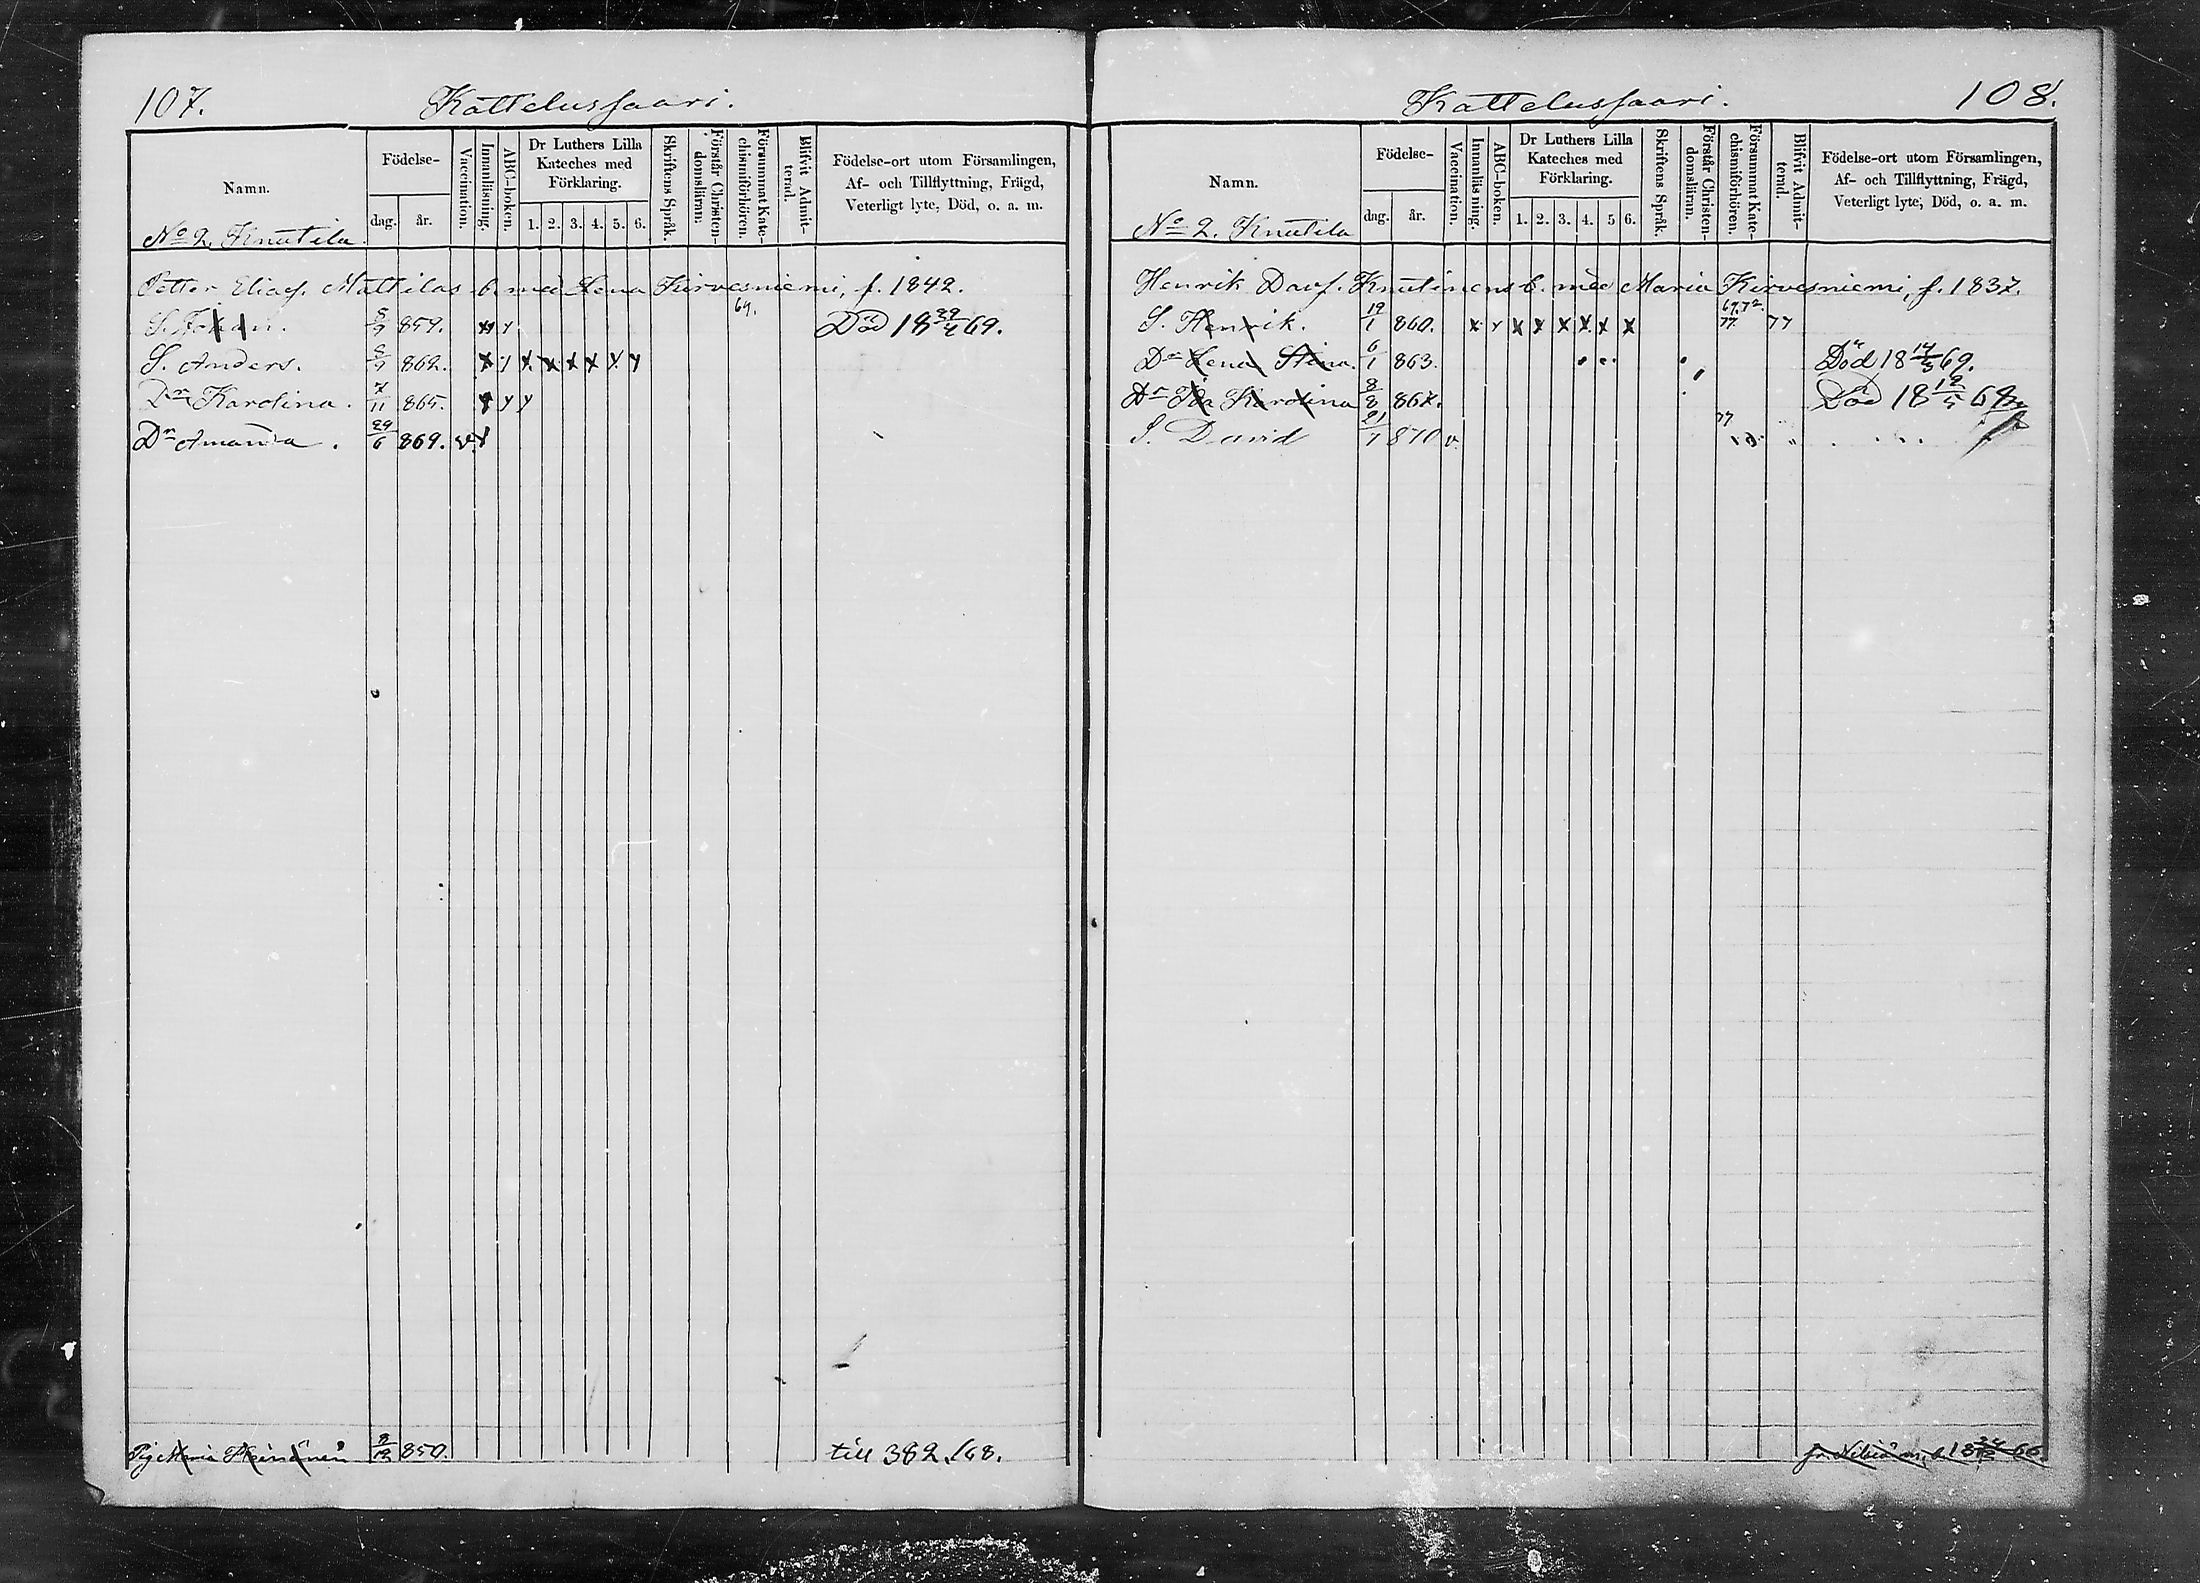 107.
Kattelussaari.
Namn.
Födelse-
dag. år.
Vaccination.
Innanläsning.
ABC-boken.
Dr Luthers Lilla
Kateches med
Förklaring.
1. 2. 3. 4. 5. 6.
Skriftens Språk.
Förstår Christen-
domsläran.
Försummat Kate-
chismiförhören.
Blifvit Admit-
terad.
Födelse-ort utom Församlingen,
Af- och Tillflyttning, Frägd,
Veterligt lyte, Död, o. a. m.
No 2. Knutila
Petter Eliass. Mattilas b. med Lena Kirvesniemi, f. 1842.
S. Johan. 859. 69. Död 18 69.
S. Anders. 862. x y x x x x y y
Dr Karolina. 7/11 865. y y
Dr Amanda. 29/6 869. v.
Pig. Maria Heinänen 850. till 382. /68.
108.
Kattelussaari.
Namn.
Födelse-
dag. år.
Vaccination.
Innanläsning.
ABC-boken.
Dr Luthers Lilla
Kateches med
Förklaring.
1. 2. 3. 4. 5 6.
Skriftens Språk.
Förstår Christen-
domsläran.
Försummat Kate-
chismiförhören.
Blifvit Admit-
terad.
Födelse-ort utom Församlingen,
Af- och Tillflyttning, Frägd,
Veterligt lyte, Död, o. a. m.
No 2. Knutila
Henrik Davs. Knutinens b. med Maria Kirvesniemi, f. 1837.
S. Henrik. 19/1 860. x y x x x x x x 69.72. 77. 77
Dr Lena Stina. 6/1 863. Död 18 69.
Dr Ida Karolina 8/8 867. Död 18 68
S. David 21/1 870 v. 77